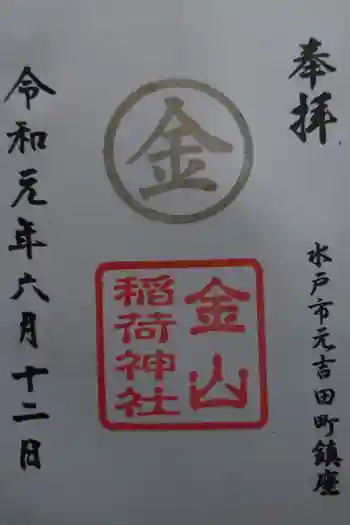 奉拝
水戸市元吉田町鎮座
金
金山
稲荷神社
令和元年六月十二日